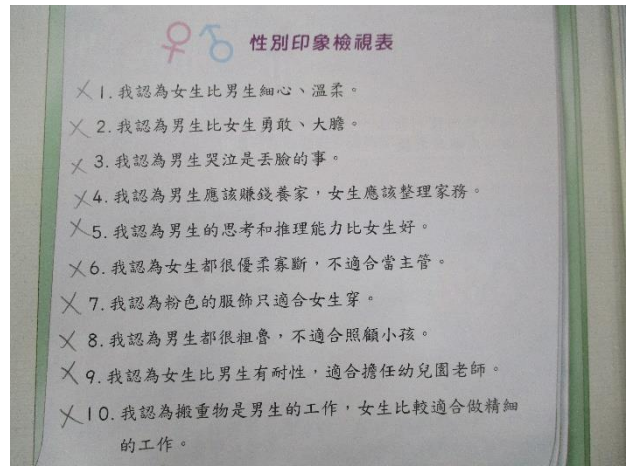 性別印象檢視表
×1.我認為女生比男生細心、溫柔。
×2.我認為男生比女生勇敢、大膽。
×3.我認為男生哭泣是丟臉的事。
×4.我認為男生應該賺錢養家，女生應該整理家務。
×5.我認為男生的思考和推理能力比女生好。
×6.我認為女生都很優柔寡斷，不適合當主管。
×7.我認為粉色的服飾只適合女生穿。
×8.我認為男生都很粗魯，不適合照顧小孩。
×9.我認為女生比男生有耐性，適合擔任幼兒園老師。
×10.我認為搬重物是男生的工作，女生比較適合做精細
的工作。